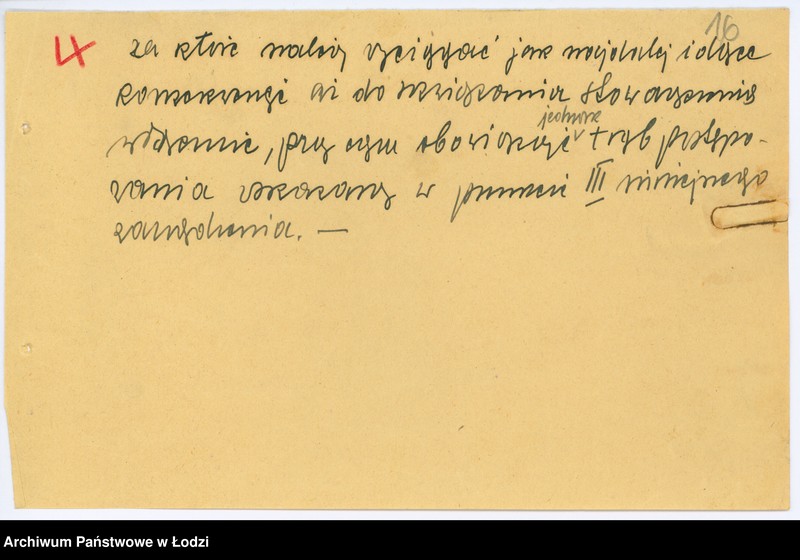 16
LX za które należy wyciągać jak najdalej idące
konsekwencje aż do rozwiązania stowarzyszenia
włącznie, przy czym obowiązuje jednak tryb postępo-
wania wskazany w punkcie III niniejszego
zarządzenia. —
Archiwum Państwowe w Łodzi